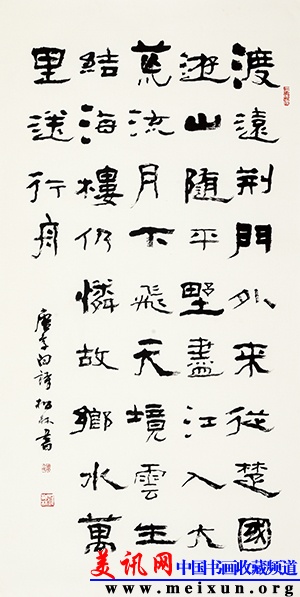 渡遠荆門外来從楚國
遊山隨平野盡江入大
荒流月下飛天境雲生
結海樓仍憐故鄉水萬
里送行舟
唐李白詩 松林書
美讯网 中国书画收藏频道
www.meixun.org